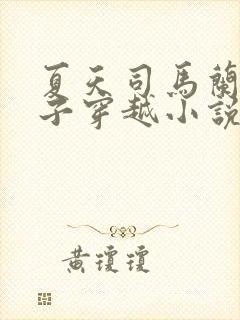 夏天司馬蘭
子穿越小說
黃瓊瓊